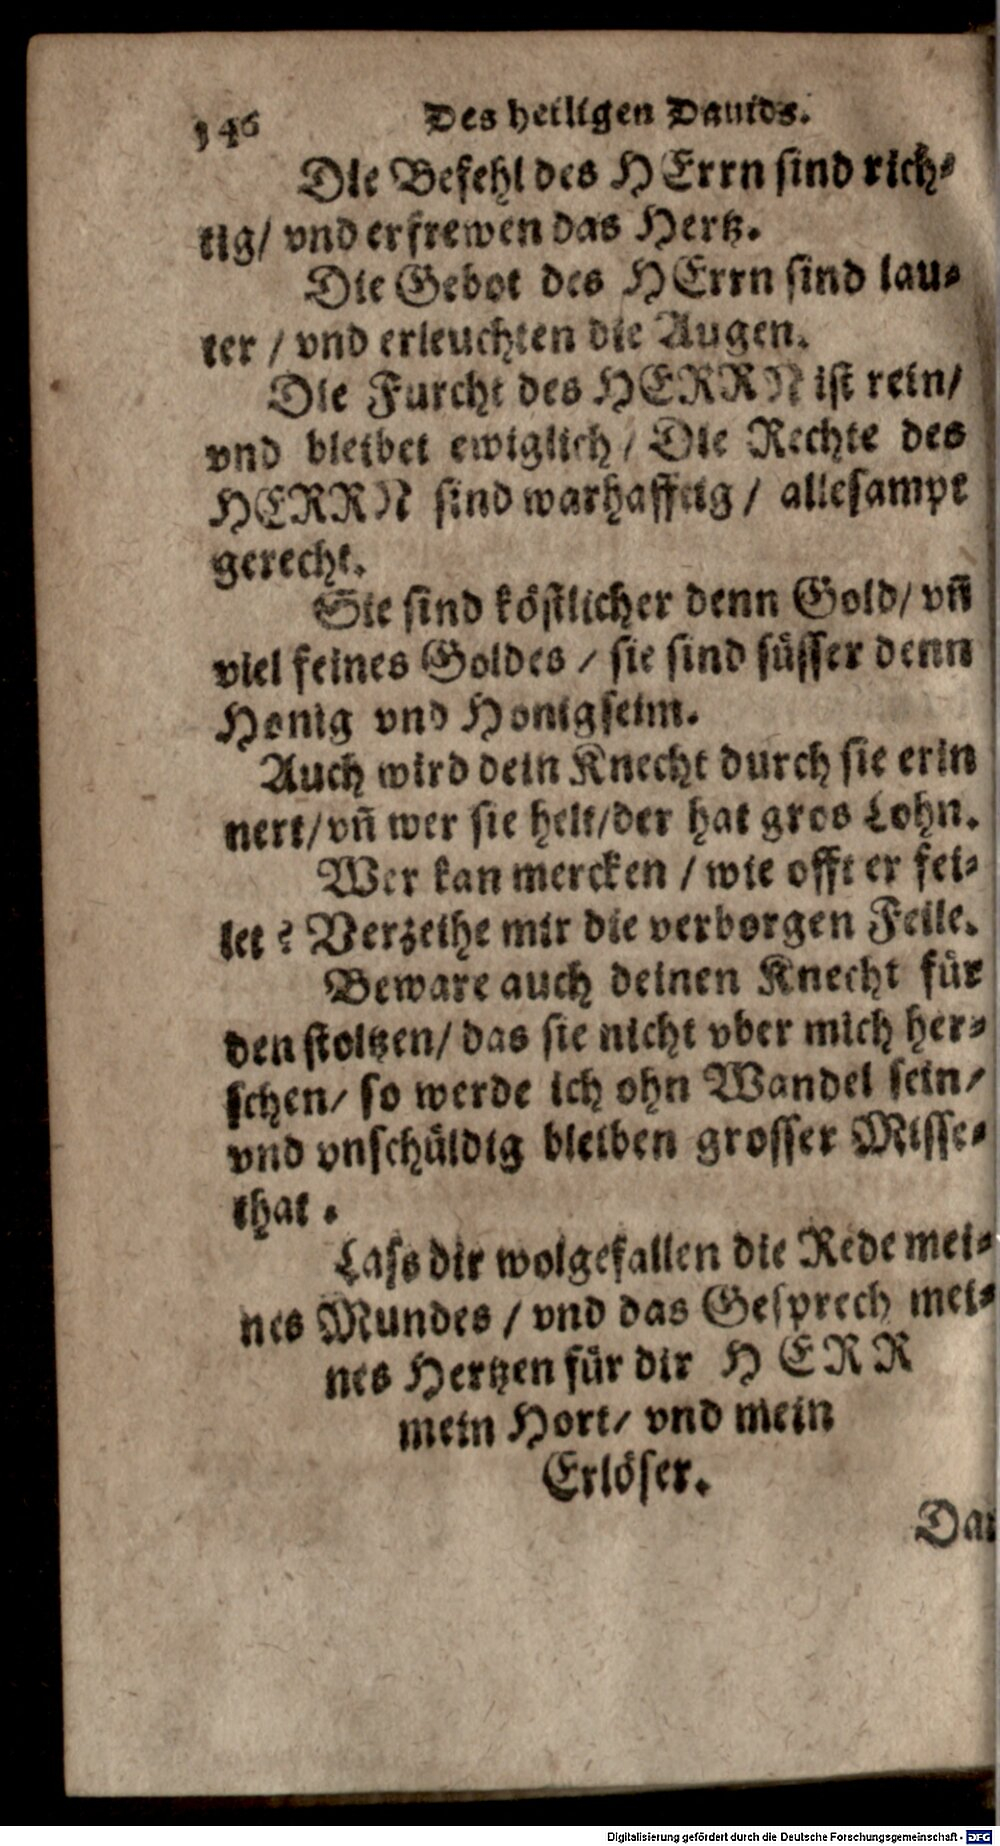 146 Des heiligen Dauids.
Die Befehl des HErrn sind rich-
tig/ vnd erfrewen das Hertz.
Die Gebot des HErrn sind lau-
ter / vnd erleuchten die Augen.
Die Furcht des HERRN ist rein/
vnd bleibet ewiglich / Die Rechte des
HERRN sind warhafftig / allesampt
gerecht.
Sie sind köstlicher denn Gold/ vñ
viel feines Goldes / sie sind süsser denn
Honig vnd Honigseim.
Auch wird dein Knecht durch sie erin
nert/vñ wer sie helt/der hat gros Lohn.
Wer kan mercken / wie offt er fei-
let? Verzeihe mir die verborgen Feile.
Beware auch deinen Knecht für
den stoltzen/ das sie nicht vber mich her-
schen/ so werde ich ohn Wandel sein/
vnd vnschüldig bleiben grosser Misse-
that.
Lass dir wolgefallen die Rede mei-
nes Mundes / vnd das Gesprech mei-
nes Hertzen für dir HERR
mein Hort/ vnd mein
Erlöser.
Digitalisierung gefördert durch die Deutsche Forschungsgemeinschaft - DFG